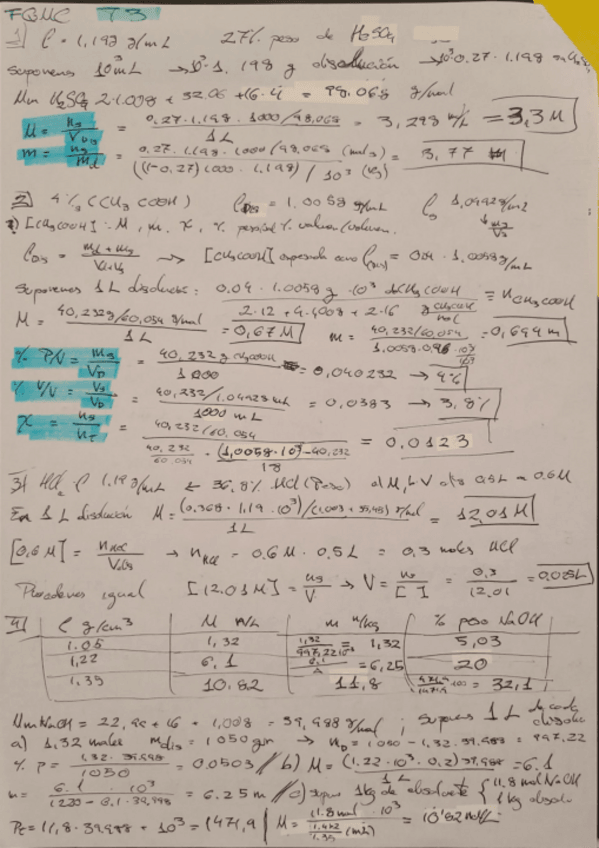 FQMC T3
1) ρ = 1,198 g/mL 27% peso de H₂SO₄
Suponemos 10³ mL → 10³ · 1,198 g disolución → 10³ · 0.27 · 1.198
Mm H₂SO₄ 2·1.008 + 32.06 + 16·4 = 98,068 g/mol
M = ns/Vdis = (0,27 · 1.198 · 1000/98,068)/1L = 3,298 m/L = 3,3 M
m = ns/md = (0.27 · 1.198 · 1000/98,068 (mols))/((1-0.27)1000 · 1.198)/10³ (kg) = 3,77 m
2) 4% (CH₃COOH) ρDis = 1.0058 g/mL ρs 1,0492 g/mL
a) [CH₃COOH] : M, m, χ, % peso/vol % volumen/volumen. ms/Vs
ρDis = (md + ms)/(Vd+Vs) → [CH₃COOH] = 0.04 · 1.0058 g/mL
Suponemos 1L disolución: 0.04 · 1.0058 g · 10³ de CH₃COOH = nCH₃COOH
M = (40,232 g/60,054 g/mol)/1L = 0,67 M m = (40,232/60,054)/(1,0058·0.96·10³/10³) = 0,694 m
% P/V = ms/VD = 40,232 g CH₃COOH/1000 = 0,040232 → 4%
% V/V = Vs/VD = (40,232/1.0492 mL)/1000 mL = 0,0383 → 3,8%
χ = ns/nT = (40,232/60,054)/(40,232/60.054 + ((1,0058·10³) - 40,232)/18) = 0,0123
3) HCl ρ 1,19 g/mL ← 36,8% HCl (Peso) 0.5L 0.6M
En 1 L disolución M = ((0,368 · 1.19 · 10³)/(1,008 + 35,45) g/mol)/1L = 12,01 M
[0,6 M] = nHCl/Vdis → nHCl = 0.6 M · 0.5 L = 0,3 moles HCl
Procedemos igual [12.01 M] = ns/V → V = ns/[ ] = 0,3/12.01 = 0,025L
4) ρ g/cm³ M n/L m n/kg % peso NaOH
1.05 1,32 1,32/997,22·10⁻³ = 1,32 5,03
1,22 6,1 = 6,25 20
1,35 10,82 11,8 471,9/1471,9·100 = 32,1
Mm NaOH = 22,99 + 16 + 1,008 = 39,998 g/mol ; supones 1L de cada disolu
a) 1,32 moles mdis = 1050 gm → nD = 1050 - 1,32·39,988 = 997,22
% P = 1,32·39,988/1050 = 0,0503 // b) M = ((1.22 · 10³ · 0,2)/39,988)/1L = 6.1
m = 6.1 · 10³/(1220 - 6.1·39,998) = 6.25 m // c) supon 1kg de disolvente { 11.8 mol NaOH
1 kg disolv
PT = 11,8 · 39.998 + 10³ = 1471,9 | M = 11.8 mol · 10³/(1,472/1.35 (mL)) = 10'82 mol/L